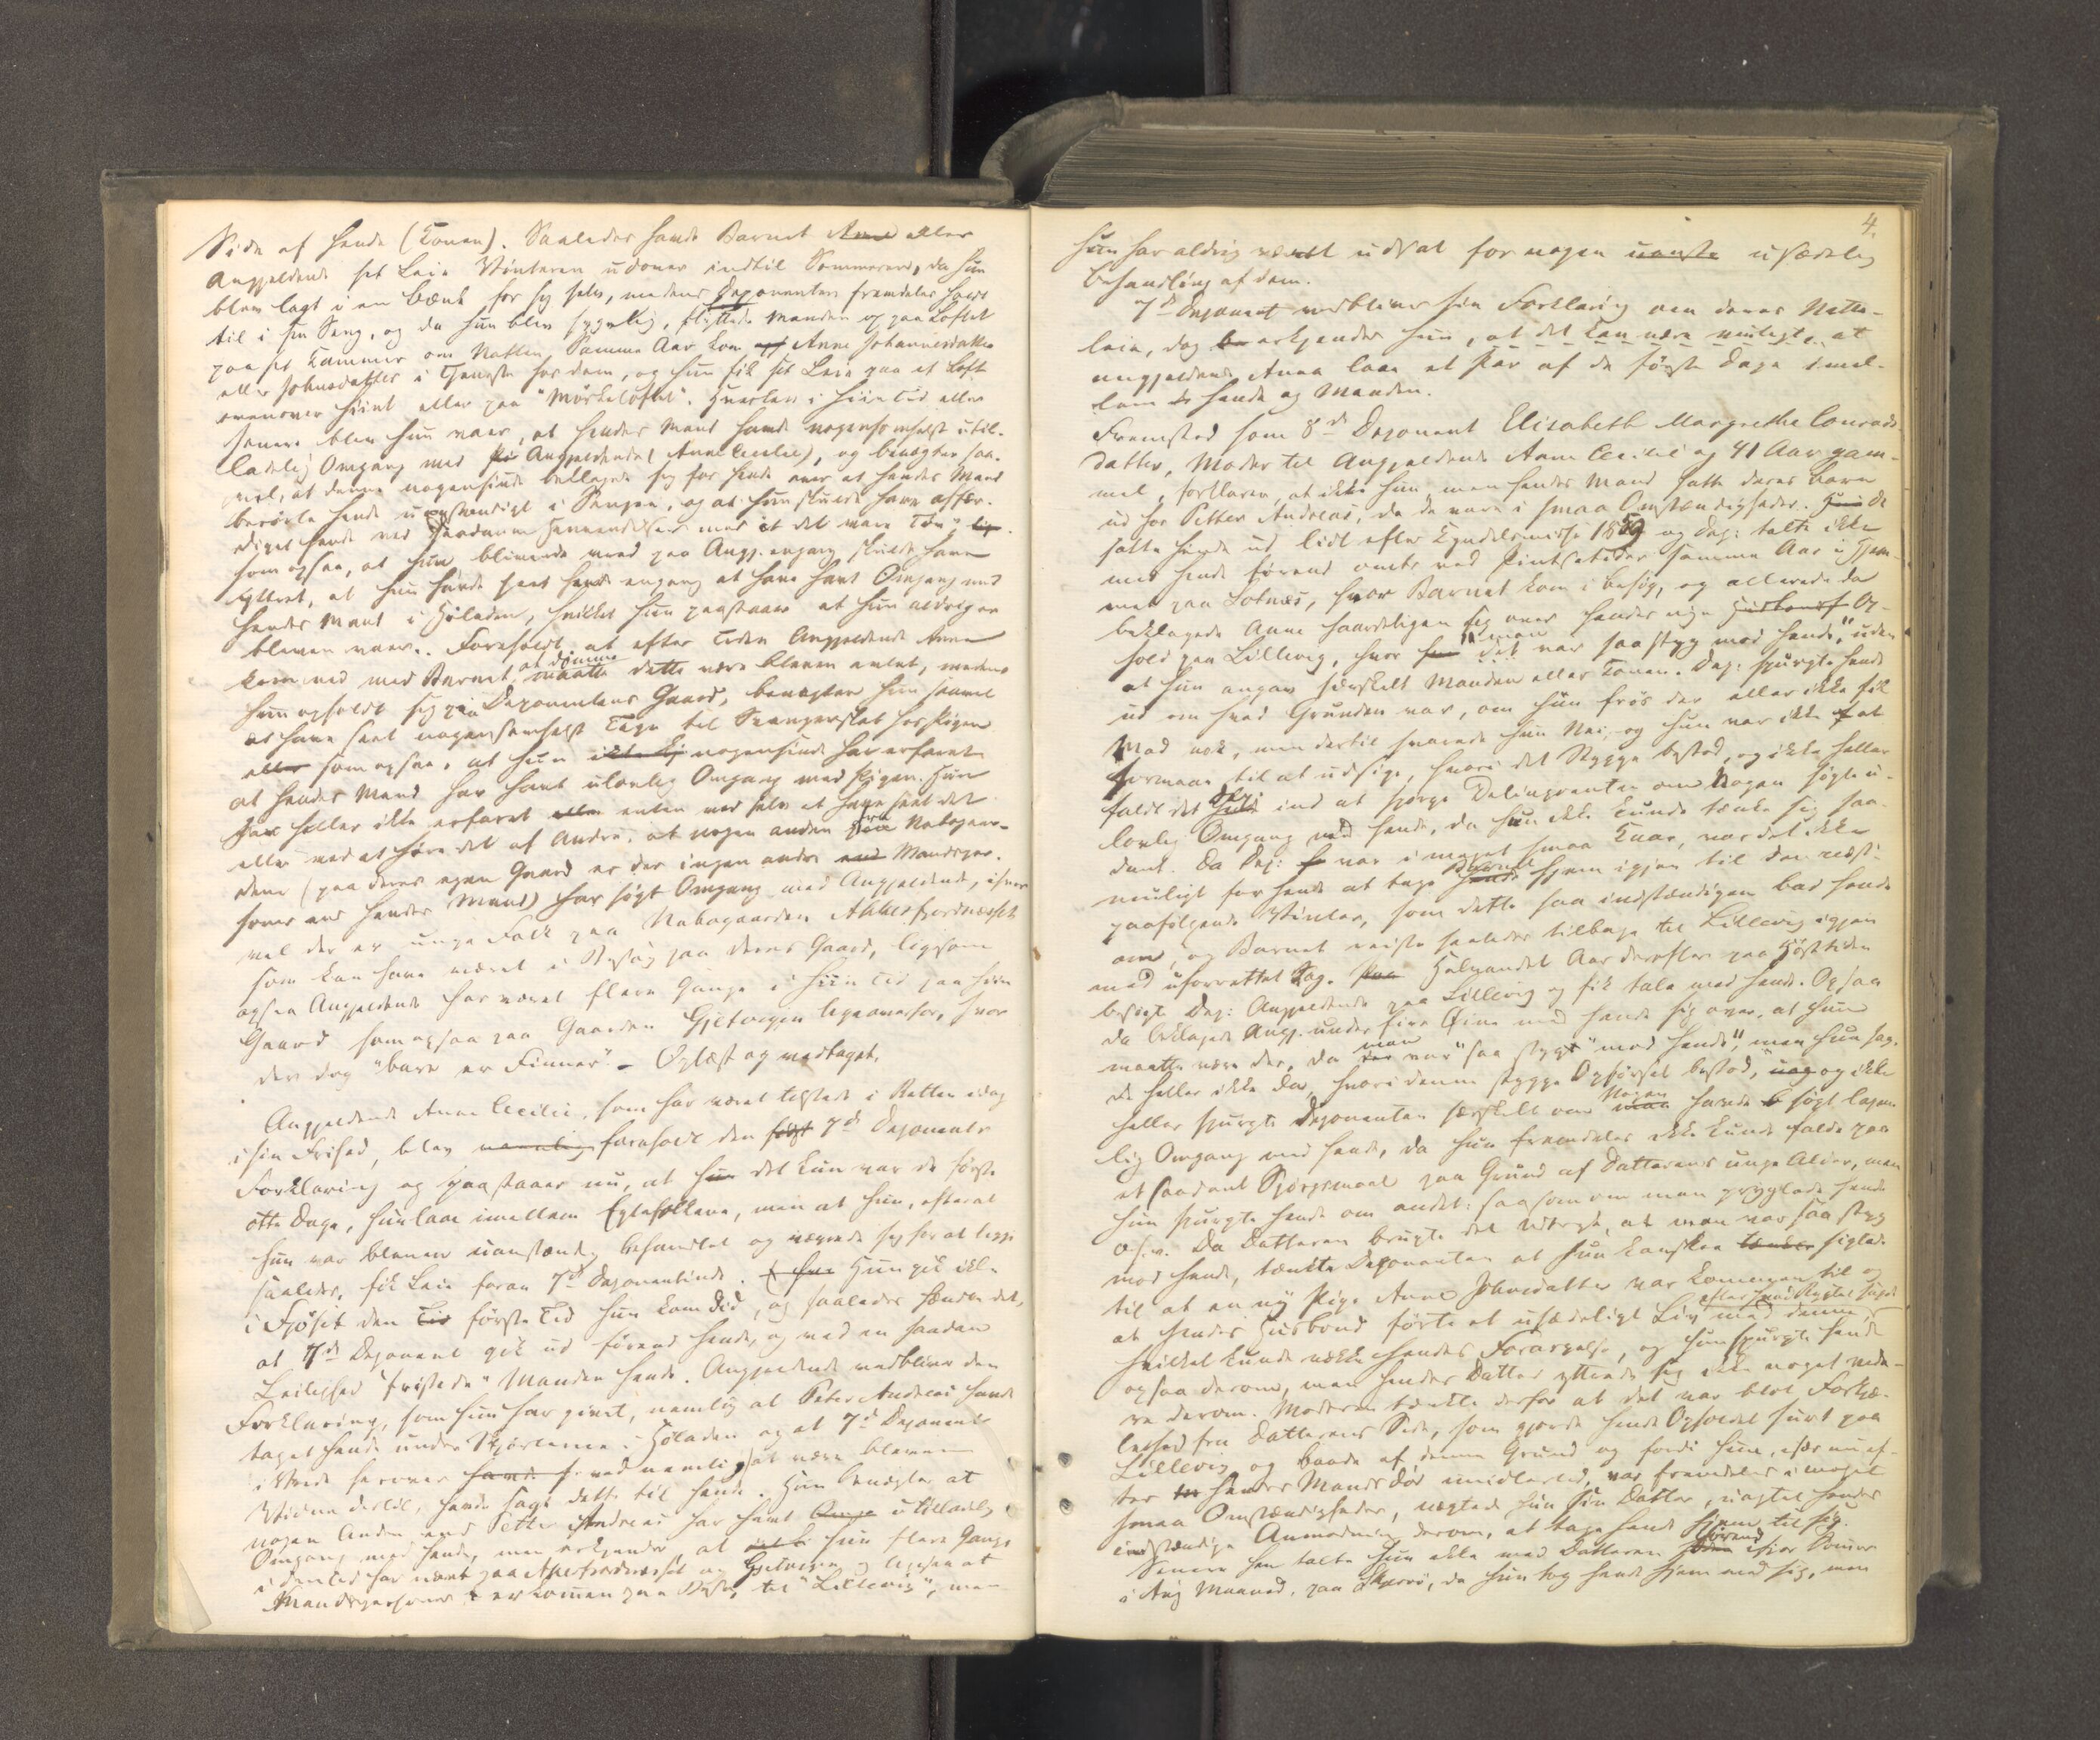 Side af hende (Konen). Saaledes havde Barnet Anne eller
Angjeldende sit Leie Vinteren udover indtil Sommeren, da hun
blev lagt i en Bænk for sig selv, medens Deponenten fremdeles holdt
til i sin Seng, og da hun blev sygelig, flyttede Manden op paa Loftet
paa sit Kammer om Natten. Samme Aar kom Anne Johannesdatter
eller Johnsdatter i Tjeneste hos dem, og hun fik sit Leie paa et Loft
ovenover hiint eller paa "Mørkeloftet". Hverken i hiin Tid eller
senere blev hun vaer, at hendes Mand havde nogensomhelst util-
ladelig Omgang med Angjeldende (Anne Cecilie), og benægter saa-
vel, at denne nogensinde beklagede sig for hende over at hendes Mand
berørte hende uanstændigt i Sengen, og at hun skulde have affær-
diget hende med saadanne Henvendelser med at det var Tøv, lige-
som ogsaa, at hun blivende vred paa Angj. engang skulde have
yttret, at hun havde seet hende engang at have havt Omgang med
hendes Mand i Høladen, hvilket hun paastaaer at hun aldrig er
bleven vaer. Foreholdt, at efter Tiden Angjeldende Anne
kom ned med Barnet, at dømme maatte dette være bleven avlet, medens
hun opholdt sig paa Deponentens Gaard, benægter hun saavel
at have seet nogensomhelst Tegn til Svangerskab hos Pigen
som ogsaa, at hun nogensinde har erfaret
at hendes Mand har havt ulovlig Omgang med Pigen. Hun
har heller ikke erfaret enten ved selv at have seet det
eller ved at høre det af Andre, at nogen anden fra Nabogaar-
dene (paa deres egen Gaard er der ingen andre Mandsper-
soner end hendes Mand) har søgt Omgang med Angjeldende, ihvor-
vel der er unge Folk paa Nabogaarden Akkerfjordnæsset
som kan have været i Besøg paa deres Gaard, ligesom
ogsaa Angjeldende har været flere Gange i hiin Tid paa hiin
Gaard som ogsaa paa Gaarden Gjetvigen ligeoverfor, hvor
der dog "bare er Finner". - Oplæst og vedtaget.
Angjeldende Anne Cecilie, som har været tilstede i Retten idag
i sin Frihed, blev foreholdt den 7de Deponents
Forklaring og paastaaer nu, at det kun var de første
otte Dage, hun laae imellem Egtefolkene, men at hun, efterat
hun var bleven uanstændig behandlet og vægrede sig for at ligge
saaledes, fik Leie foran 7de Deponentinde. Hun gik ikke
i Fjøset den første Tid hun kom did, og saaledes hændte det,
at 7de Deponent gik ud førend hende, og ved en saadan
Leilighed "fristede" Manden hende. Angjeldende vedbliver den
Forklaring, som hun har givet, nemlig at Peter Andreas havde
taget hende under Skjørterne i Høladen og at 7de Deponent
i Vrede herover ved nemlig at være bleven
Vidne dertil, havde sagt dette til hende. Hun benægter at
nogen Anden end Petter Andreas har havt utilladelig
Omgang med hende, men erkjender at hun flere Gange
i den Tid har været paa Akerfjordnæsset og Gjetvigen og ligesaa at
Mandspersoner er kommen paa Besøg til "Lillevig", men
4.
hun har aldrig været udsat for nogen usædelig
Behandling af dem.
7de Deponent vedbliver sin Forklaring om deres Natte-
leie, dog erkjender hun, at det kan være muligt, at
angjeldende Anna laae et Par af de første Dage imel-
lem hende og Manden.
Fremstod som 8de Deponent Elisabeth Margrethe Conrads-
datter, Moder til Angjeldende Anne Cecilie og 41 Aar gam-
mel, forklarer, at ikke hun men hendes Mand satte deres Barn
ud hos Petter Andreas, da de vare i smaa Omstændigheder. De
satte hende ud lidt efter Kyndelsmisse 1859 og Dep: talte ikke
med hende førend omtr. ved Pintsetider samme Aar i Hjem-
met paa Lotnæs, hvor Barnet kom i besøg, og allerede da
beklagede Anne haardeligen sig over hendes nye Op-
hold paa Lillevig, hvor "man var saa styg mod hende", uden
at hun angav særskilt Manden eller Konen. Dep: spurgte hende
ud om hvad Grunden var, om hun frøs der eller ikke fik
Mad nok, men dertil svarede hun Nei, og hun var ikke at
formaae til at udsige, hvori det Stygge bestod, og ikke heller
faldt det Dep: ind at spørge Delinqventen om Nogen søgte u-
lovlig Omgang med hende, da hun ikke kunde tænke sig saa-
dant. Da Dep: var i meget smaa Kaar, var det ikke
muligt for hende at tage Barnet hjem igjen til den næst-
paafølgende Vinter, som dette saa indstændigen bad hende
om, og Barnet reiste saaledes tilbage til Lillevig igjen
med uforrettet Sag. Halvandet Aar derefter paa Høsttiden
besøgte Dep: Angjeldende paa Lillevig og fik tale med hende. Ogsaa
da beklagede Angj. under fire Øine med hende sig over, at hun
maatte være der, da man var "saa stygt" mod hende", men hun sag-
de heller ikke da, hvori denne stygge Opførsel bestod, og ikke
heller spurgte Deponenten særskilt om Nogen havde søgt legem-
lig Omgang med hende, da hun fremdeles ikke kunde falde paa
et saadant Spørgsmaal paa Grund af Datterens unge Alder, men
hun spurgte hende om andet: saasom om man pryglede hende
o.s.v. Da Datteren brugte det Udtryk, at man var saa styg
mod hende, tænkte Deponenten at hun kanskee sigtede
til at en ny Pige Anne Johnsdatter var kommen til og
at hendes Husbond førte et usædeligt Liv med denne, efter hvad Rygtet sagde
hvilket kunde vække hendes Forargelse, og hun spurgte hende
ogsaa derom, men hendes Datter yttrede sig ikke noget næ-
re derom. Moderen tænkte derfor at det var blot Forkje-
lethed fra Datterens Side, som gjorde hende Opholdet surt paa
Lillevig og baade af denne Grund og fordi hun, især nu ef-
ter hendes Mands Død imidlertid, var fremdeles i meget
smaa Omstændigheder, negtede hun sin Datter, uagtet hendes
indstændige Anmodning derom, at tage hende hjem til sig.
Senere hen talte hun ikke med Datteren førend ifjor Sommer
i Aug Maaned, paa Skjærvø, da hun tog hende hjem med sig, men